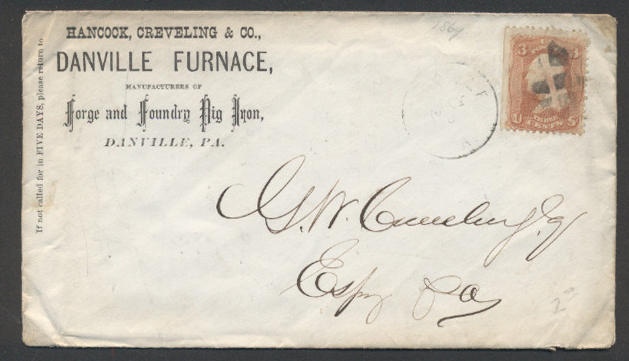 HANCOCK, CREVELING & CO.,
DANVILLE FURNACE,
MANUFACTURERS OF
Forge and Foundry Pig Iron,
DANVILLE, PA.
If not called for in FIVE DAYS, please return to
3 3
U THREE S
CENTS
G. W. Creveling Esq
Espy Pa